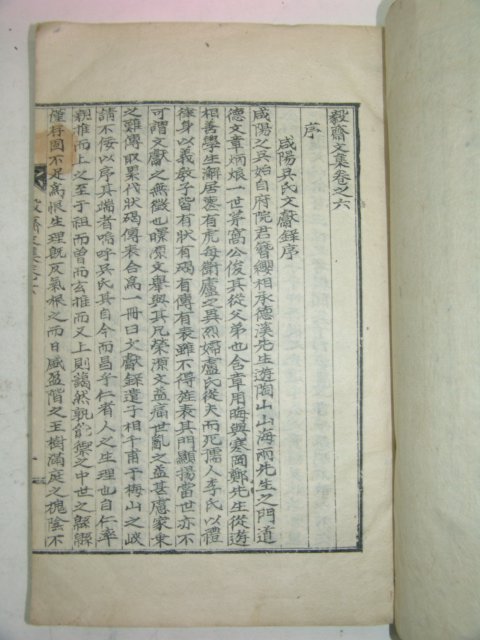 毅齋文集卷之六
序
咸陽吳氏文獻錄序
咸陽之吳始自府院君簪纓相承德溪先生遊陶山山海兩先生之門道
德文章炳烺一世茅窩公俊其從父弟也含章用晦與寒岡鄭先生從遊
相善學生澥居墓有虎每衛廬之異烈婦盧氏從夫而死孺人李氏以禮
律身以義敎子皆有狀有碣有傳有表雖不得旌表其門顯揚當世亦不
可謂文獻之無徵也曝源文擧與其兄榮源文益痛世亂之益甚慮家乘
之難傳取累代狀碣傳表合爲一冊曰文獻錄遣子相千責于梅山之峽
請不侫以序其端者嗚呼吳氏其自今而昌乎仁者人之生理也自仁率
親推而上之至于祖而曾而玄推而又上則藹然孰能禦之中世之緜緜
僅存固不足爲恨生理旣反氣根之而日盛盈階之玉樹滿庭之槐陰不
毅齋文集卷六